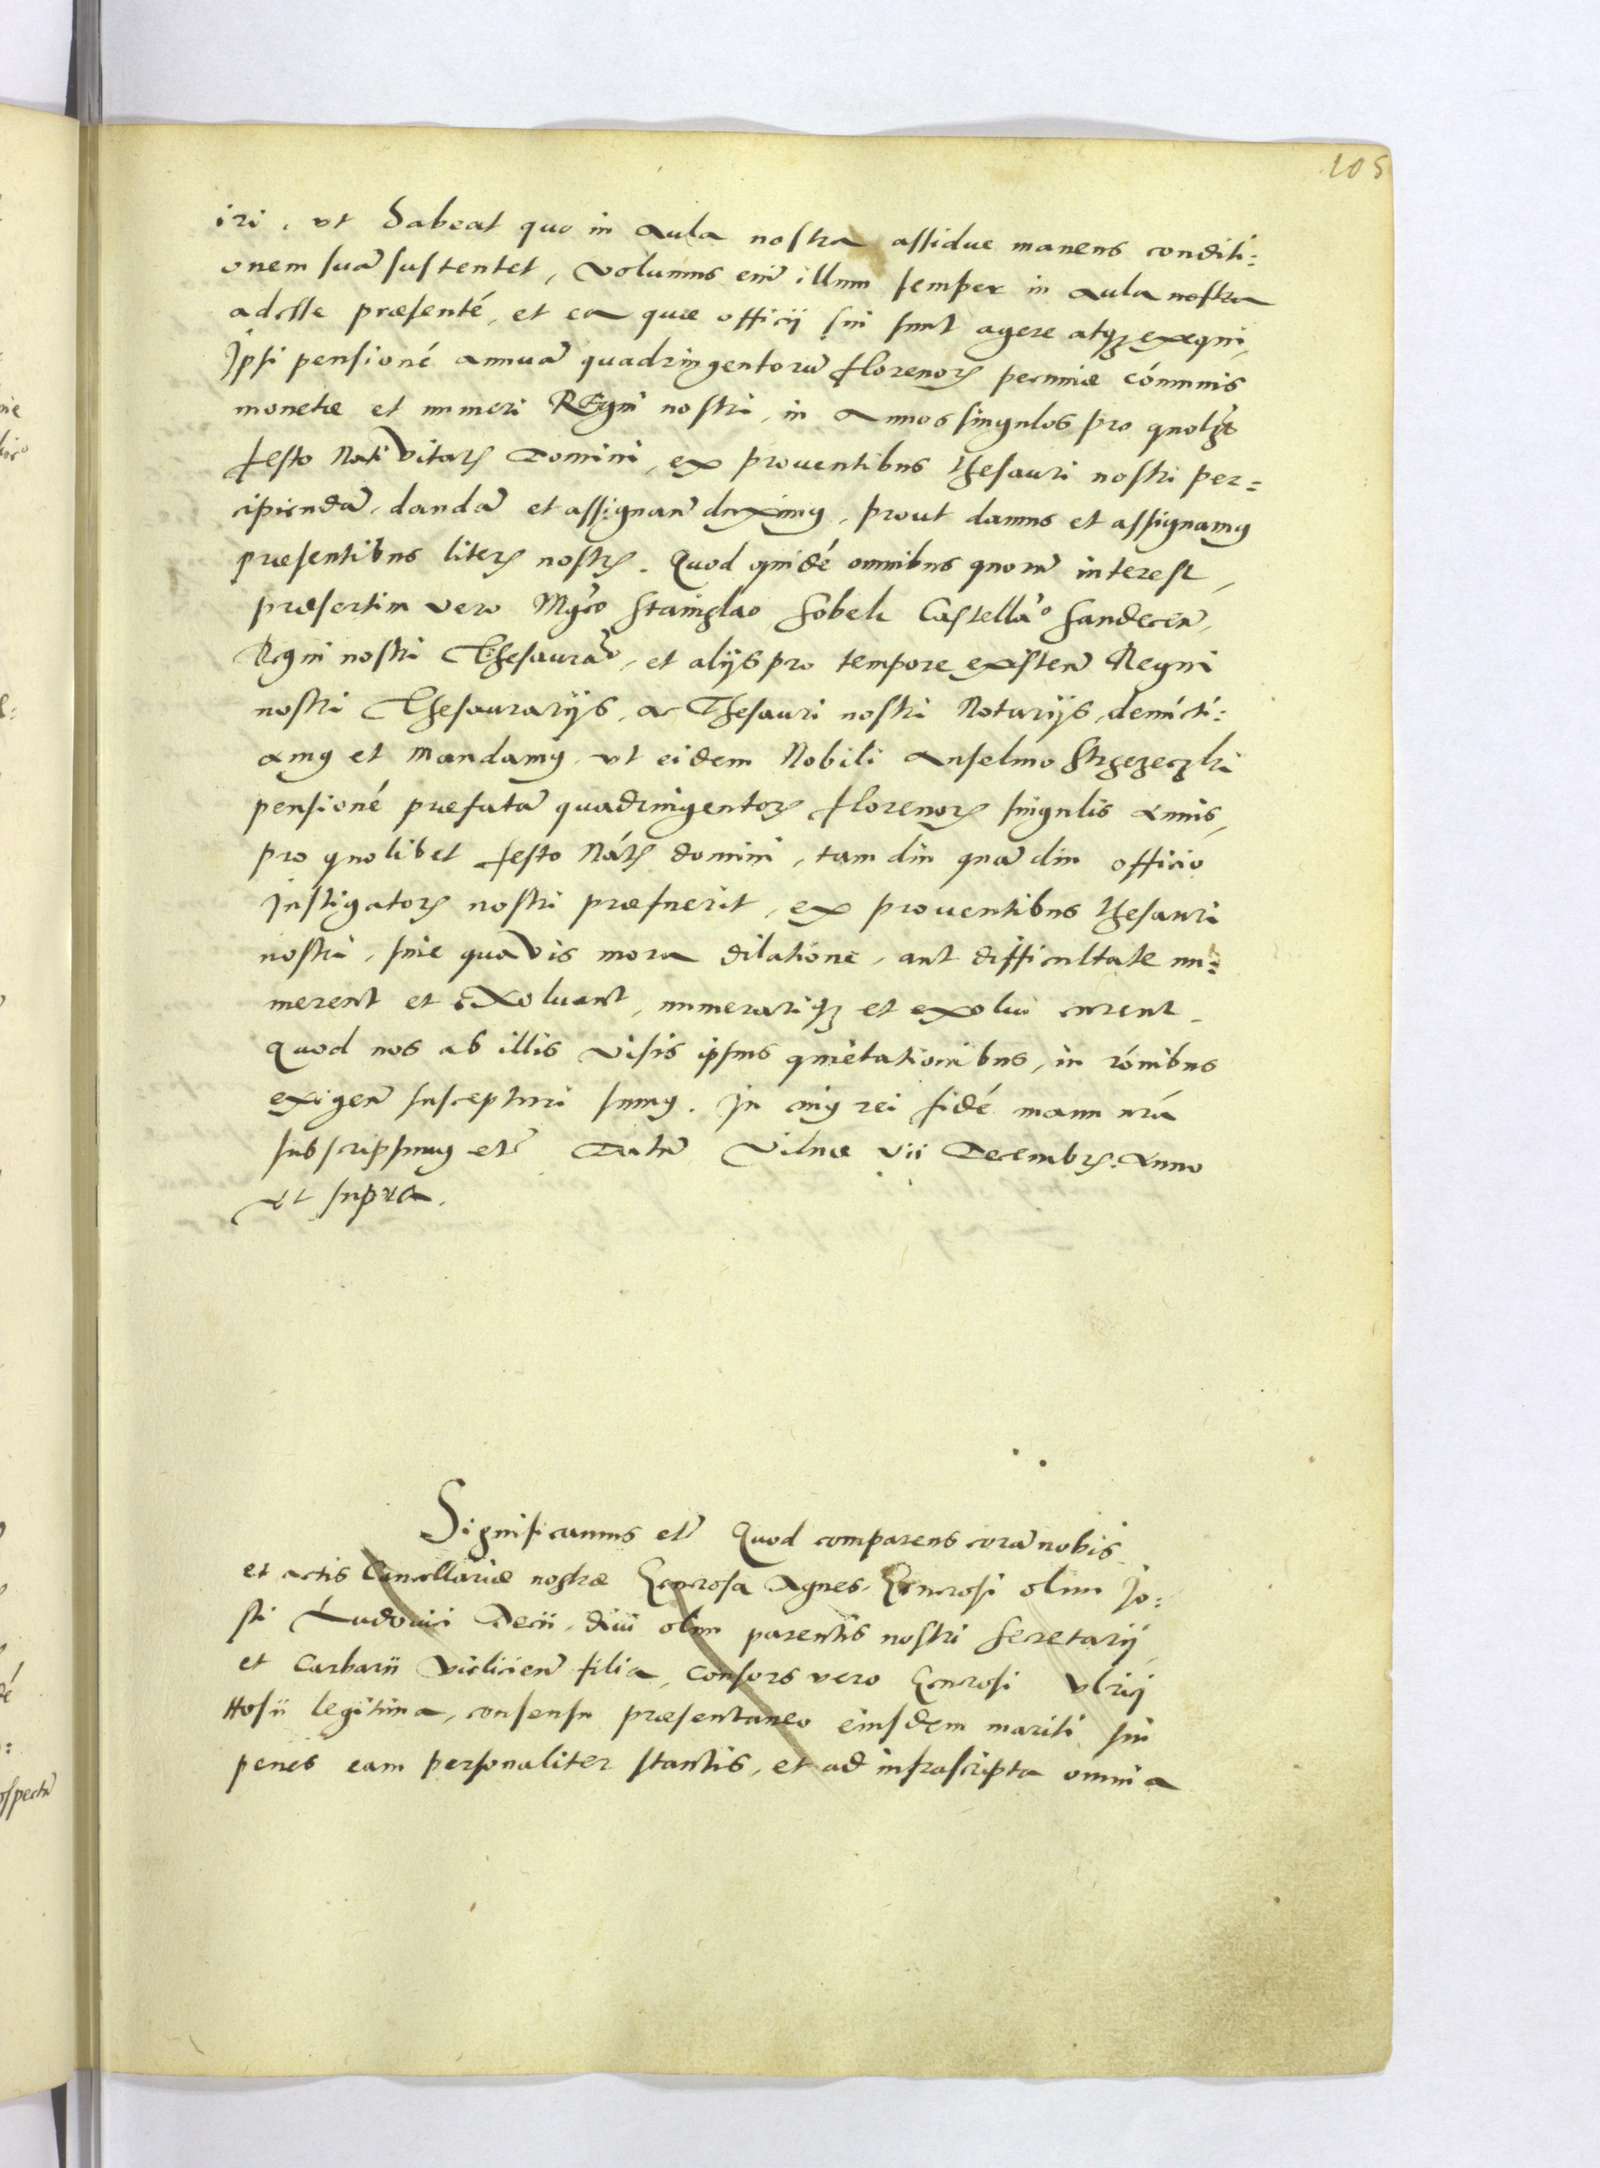 105
iri, vt habeat quo in Aula nostra assidue manens conditi:
onem suã sustentet, Volumus em̃ illum semper in Aula nostra
adesse præsenté, et ea quæ officij sui sunt agere atqȝ exequi,
Ipsi pensioné annuã quadringentorũ florenorꝫ pecuniæ cómunis
monetæ et numeri REgni nostri, in Annos singulos pro quolȝt
festo Natiuitatꝫ Domini, ex prouentibus thesauri nostri per=
cipiendã, dandã et assignan̄ duximꝰ, prout damus et assignamꝰ
præsentibus literꝫ nostrꝫ. Quod quidé omnibus quorũ interest,
præsertim vero Mgco Stanislao Sobek Castellão Sandecen̄,
Regni nostri Thesaurario, et alijs pro tempore existen̄ Regni
nostri Thesaurarijs, ac Thesauri nostri Notarijs, denúcti:
amꝰ et mandamꝰ, vt eidem Nobili Anselmo Strzezeczki
pensioné præfatã quadringentorꝫ florenorꝫ singulis Annis,
pro quolibet festo Nátꝫ domini, tam diu quã diu officio
Instigatorꝫ nostri præfuerit, ex prouentibus thesauri
nostri, sine quavis mora dilatione, aut difficultate nu:
merent et exoluant, numerariqȝ et exolui curent.
Quod nos ab illis visis ipsius quietationibus, in rónibus
exigen̄ suscepturi sumꝰ. In cuiꝰ rei fidé manu nrá
subscripsimꝰ etc̃ Datũ Vilnæ vii Decembrꝫ Anno
vt supra.
Significamus etc̃ Quod comparens corã nobis
et actis Cancellariæ nostræ Generosa Agnes, Generosi olim Jo:
sti Ludouici Decii, diui olim parentis nostri Secretarij
et Carbarii Vielicien̄ filia, Consors vero Generosi Vlrici
Hosii legitima, consensu præsentaneo eiusdem mariti sui
penes eam personaliter stantis, et ad infrascripta omnia